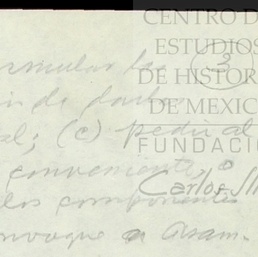 CENTRO DE
ESTUDIOS
DE HISTOR
DE MEXIC
FUNDACIÓ
Carlos Sli
3
formular la
de darle
al; (c) pedir al
conveniente, o
los componentes
convoque a Asam-